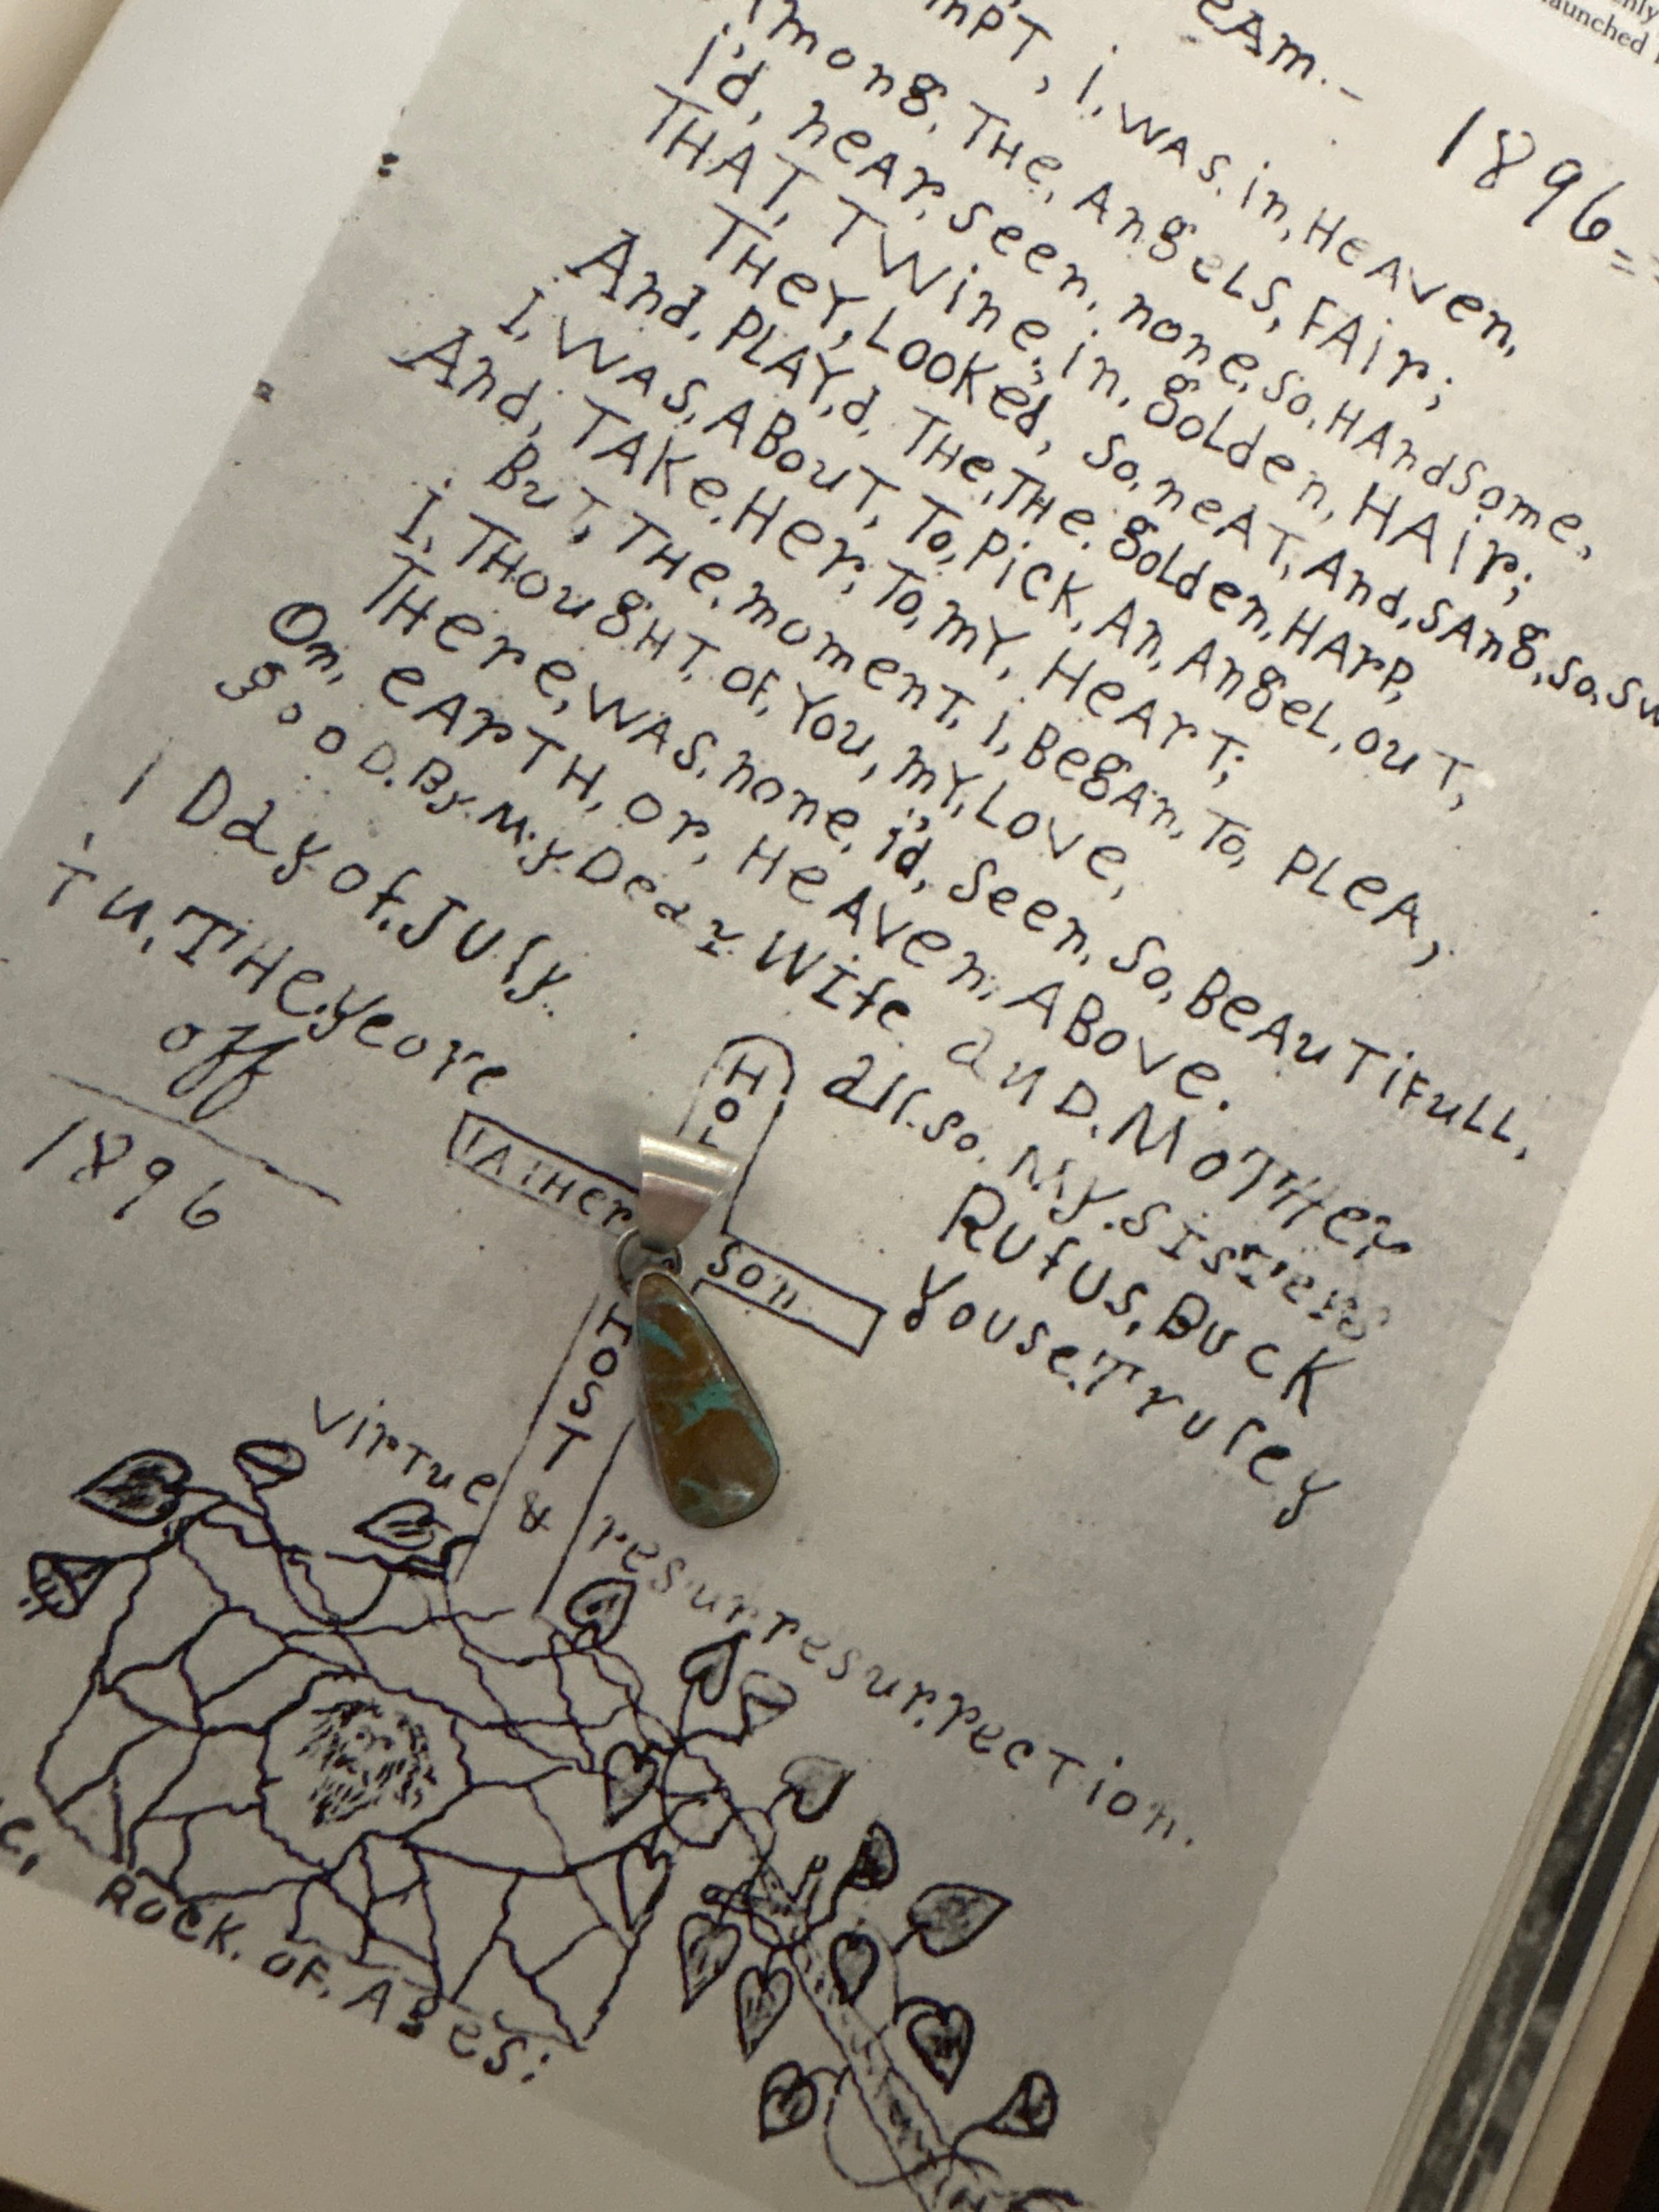 launched
eAm.-
1896=
mPT, i, WAS. in, HeAven,
Among, THe, AngeLS, FAir;
i'd, neAr, seen, none, so, HAndsome,
THAT, TWine, in, golden, HAir;
THeY, LOOKed, so, neAT, And, sAng, so, sw
And, PLAY,d, THe, THe. golden, HArp,
I, WAS, ABouT, To, Pick, An, AngeL, ouT,
And, TAKe, Her, To, mY, HeArT;
BuT, THe, momenT, i, BegAn, To, PLeA,
I, THougHT, OF, You, mY, Love,
THere, WAS, none, i'd, seen, so, BeAuTiFuLL,
On, eArTH, or, HeAven, ABove.
gooD. By. M.y. Dear. Wife. anD. MoTHer
all. so. My. sisTers
Rufus, Buck
youse. Truley
1 Day of. July
Tu, THe. yeore
off
1896
HOL
FATHer
son
HOST
&
virTue
resurresurrecTion.
ROCK. OF. AgeS: